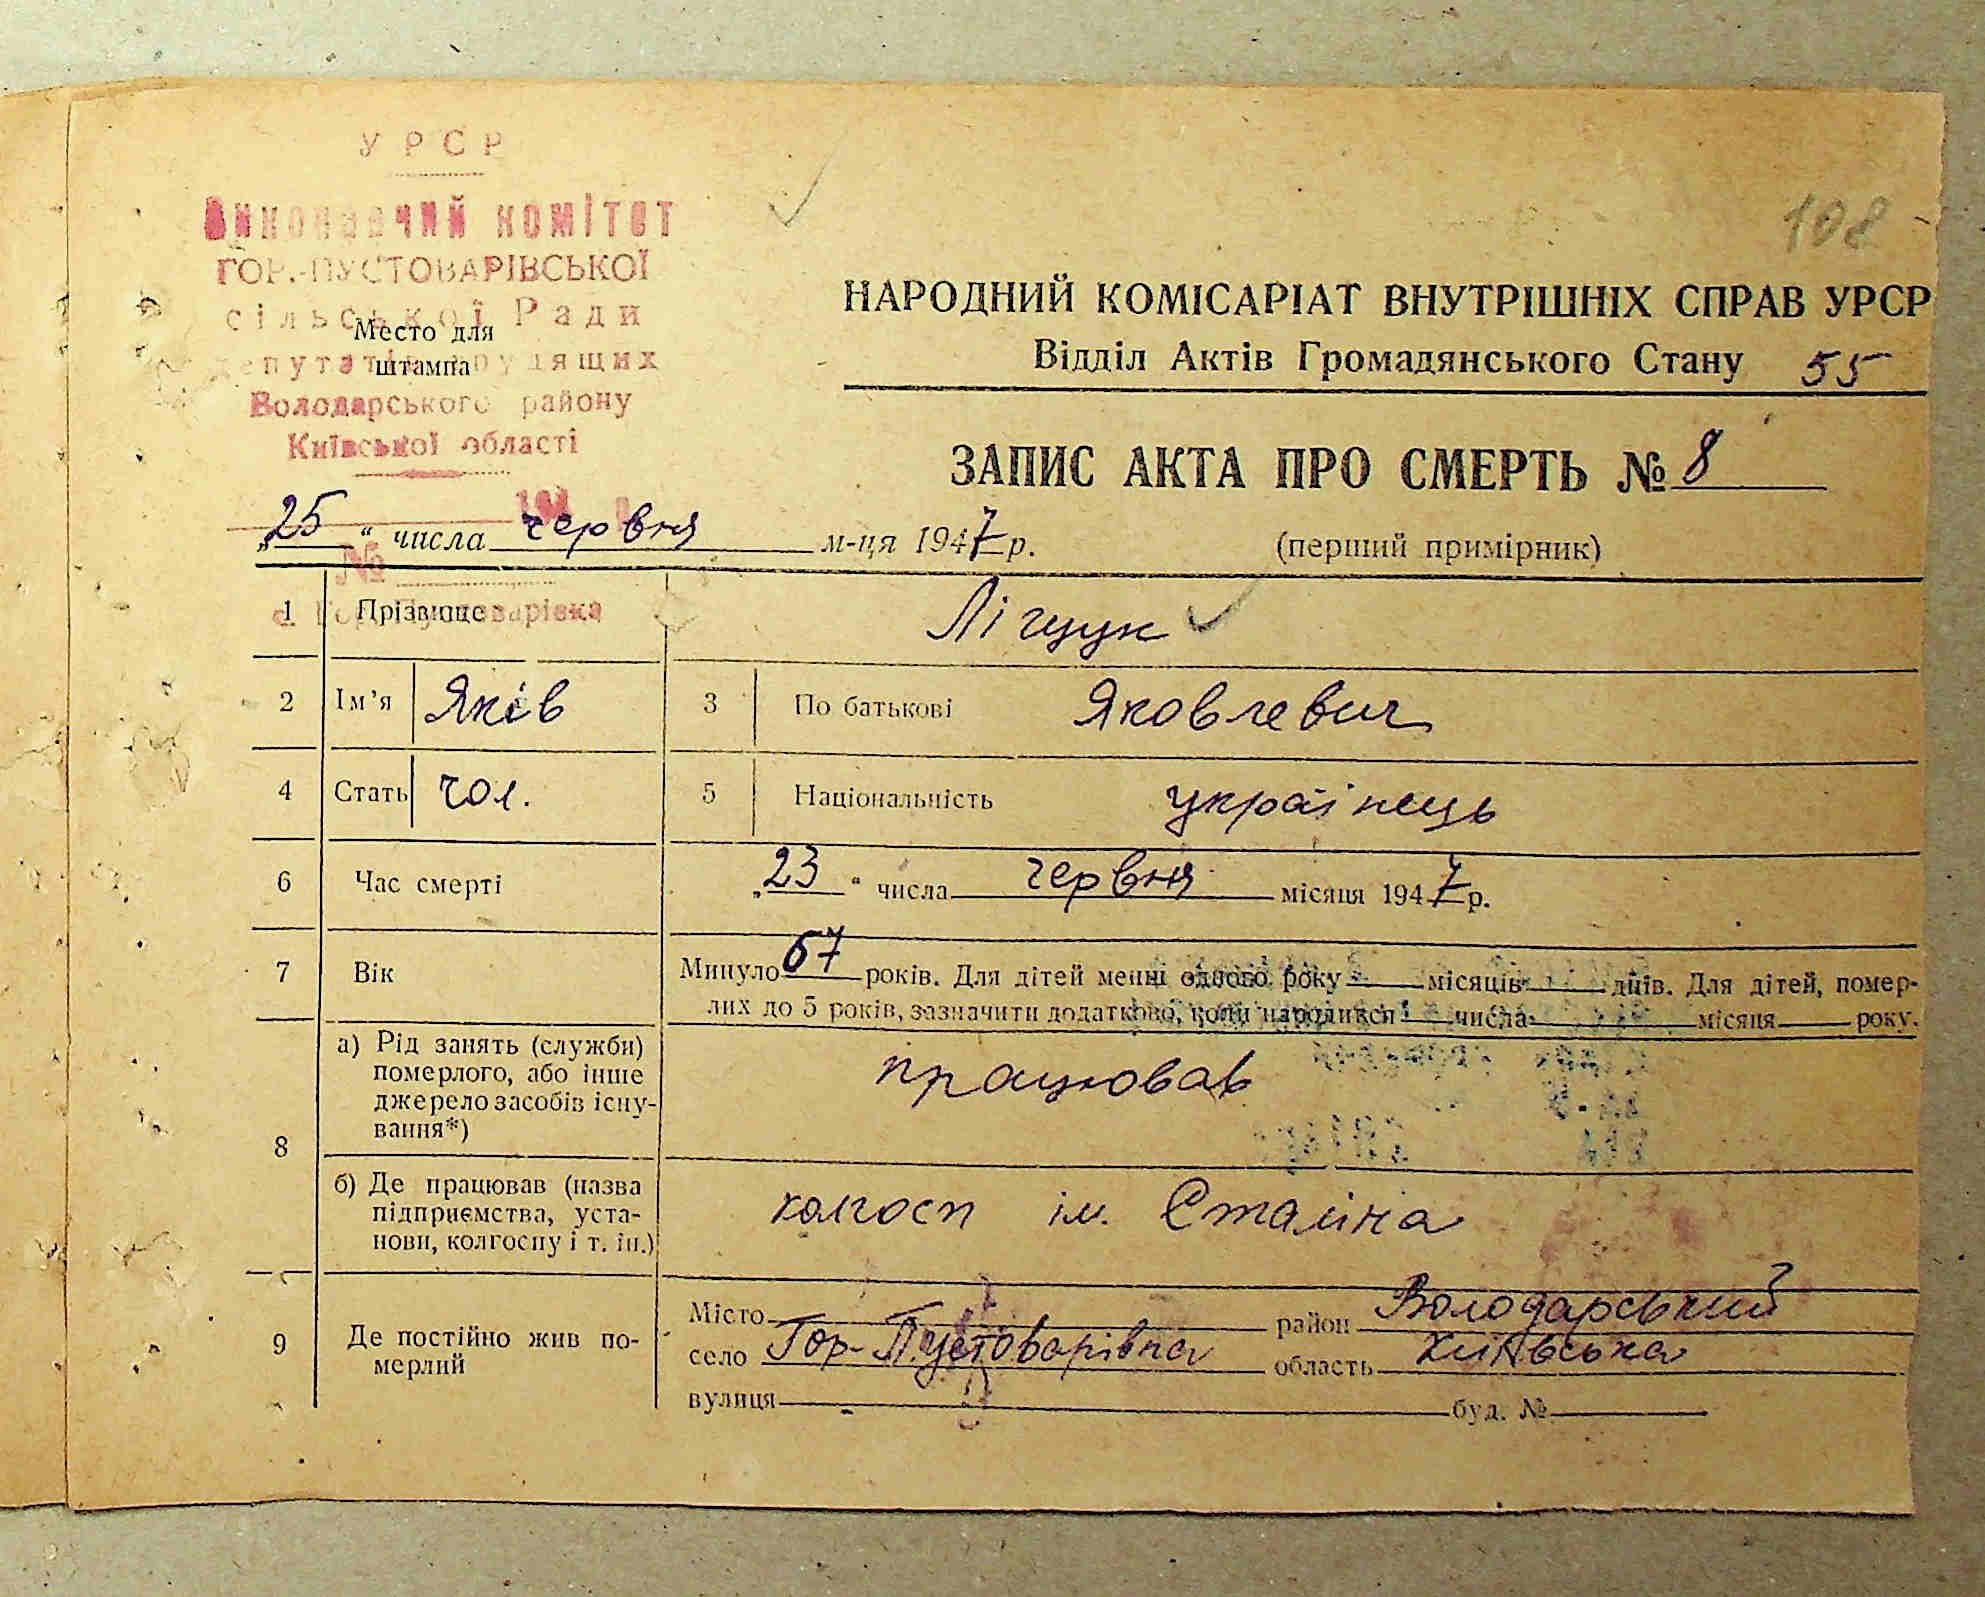 УРСР
Виконавчий комітет
ГОР.-ПУСТОВАРІВСЬКОЇ
сільської Ради
депутатів трудящих
Володарського району
Київської області
Место для
штампа
108
НАРОДНИЙ КОМІСАРІАТ ВНУТРІШНІХ СПРАВ УРСР
Відділ Актів Громадянського Стану 55
ЗАПИС АКТА ПРО СМЕРТЬ № 8
(перший примірник)
„25“ числа червня м-ця 1947 р.
№
с. Гор. Пустоварівка
1 Прізвище Лігуук
2 Ім'я Яків 3 По батькові Яковлевич
4 Стать чол. 5 Національність українець
6 Час смерті „23“ числа червня місяця 1947 р.
7 Вік Минуло 67 років. Для дітей менш одного року місяців днів. Для дітей, помер-
лих до 5 років, зазначити додатково, коли народився числа місяця року.
8 а) Рід занять (служби)
померлого, або інше
джерело засобів існу-
вання*)
працював
б) Де працював (назва
підприємства, уста-
нови, колгоспу і т. ін.)
колгосп ім. Сталіна
9 Де постійно жив по-
мерлий
Місто район Володарський
село Гор-Пустоварівка область Київська
вулиця буд. №